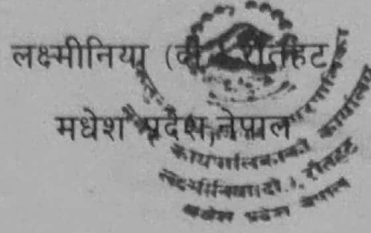 लक्ष्मीनिया (दो.) रौतहट
मधेश प्रदेश,नेपाल
कार्यपालिकाको कार्यालय
लक्ष्मीनिया(दो.), रौतहट
मधेश प्रदेश नेपाल